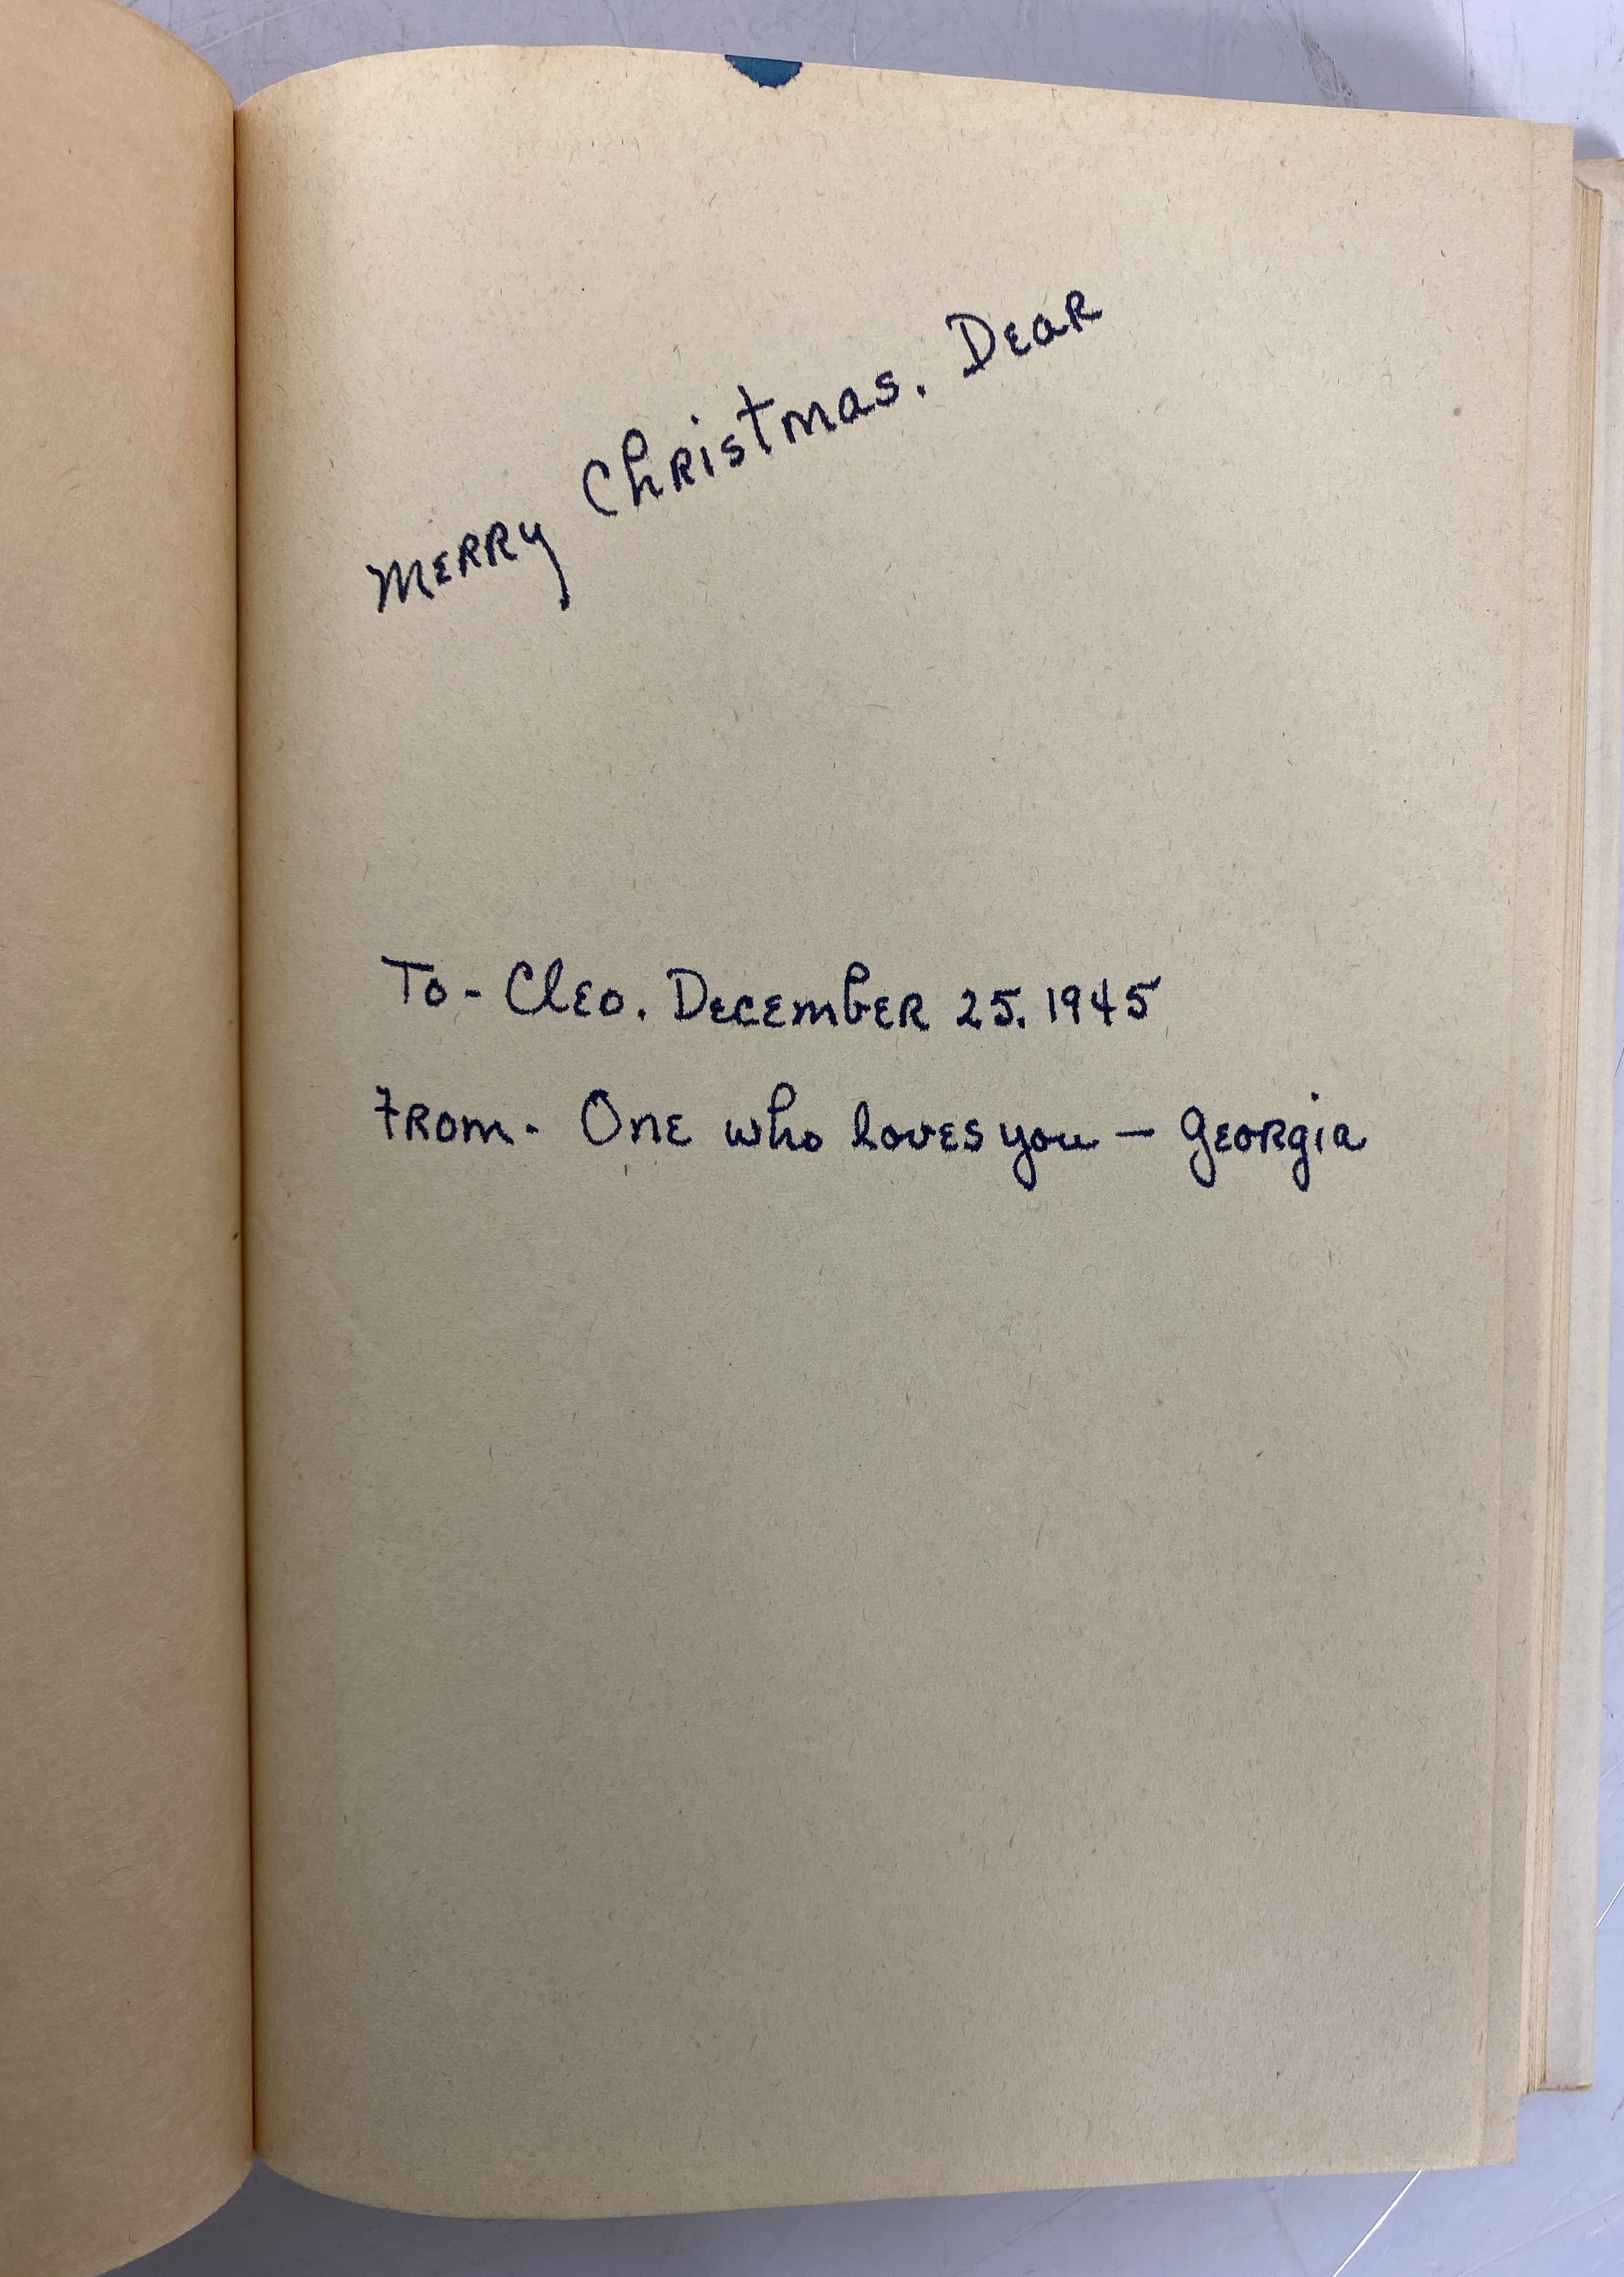 Merry Christmas. Dear
To - Cleo. December 25. 1945
From - One who loves you — Georgia